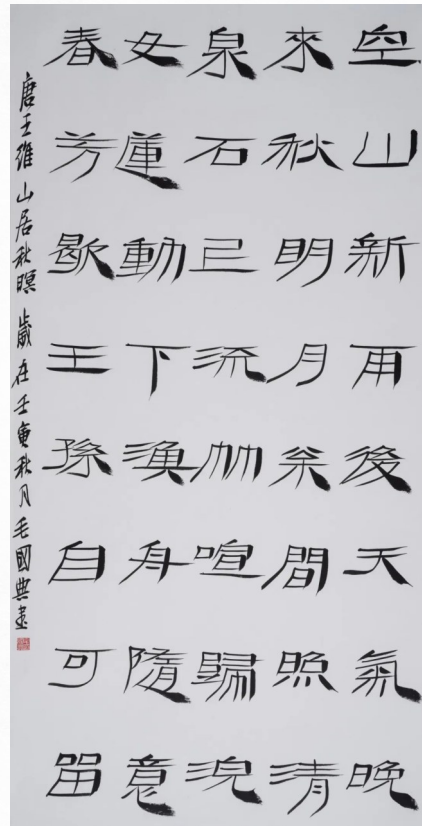 空山新雨後天氣晚
來秋明月枀間照清
泉石上流竹喧歸浣
女蓮動下漁舟隨意
春芳歇王孫自可留
唐王維山居秋暝 歲在壬寅秋月毛國典書